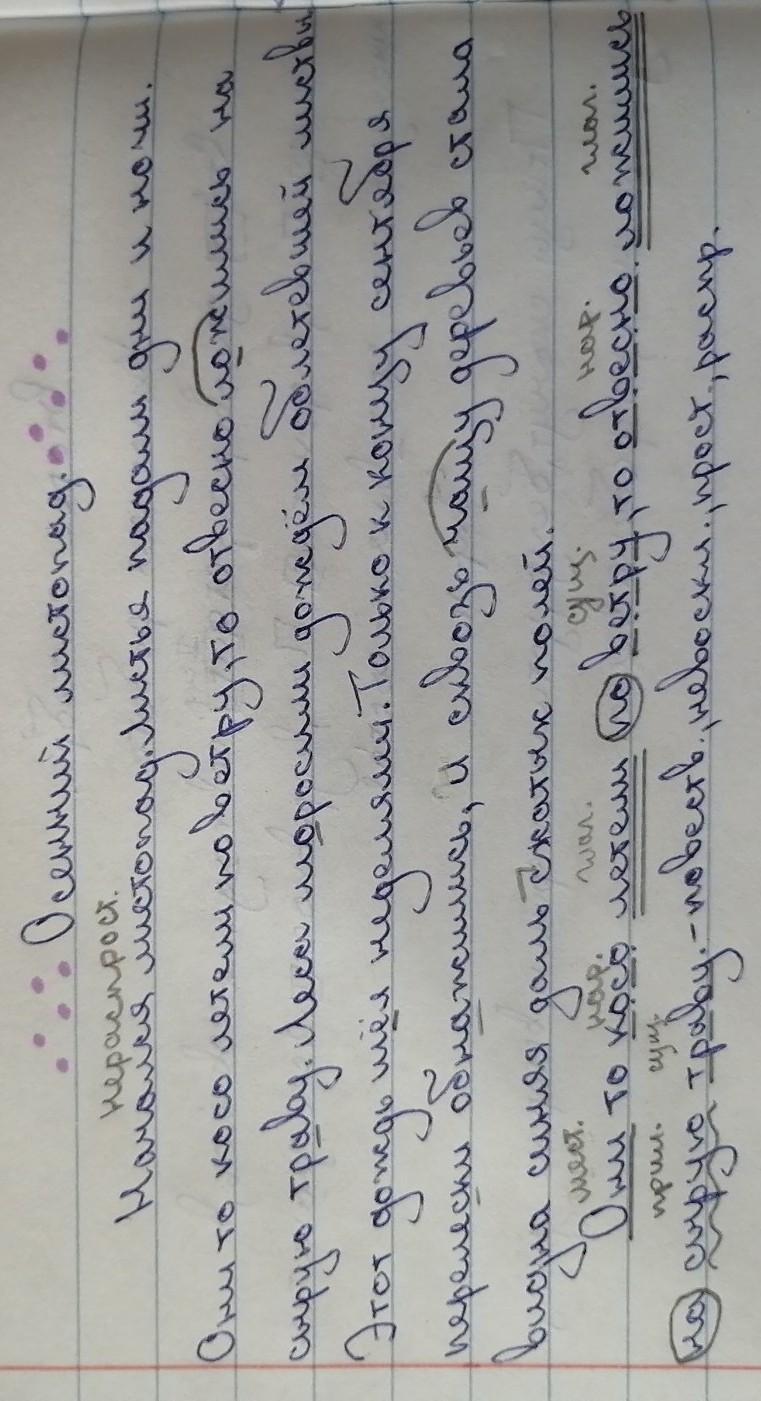 Осенний листопад.
нераспрост.
Начался листопад. Листья падали дни и ночи.
Они то косо летели по ветру, то отвесно ложились на
сырую траву. Леса моросили дождём облетевшей листвы
Этот дождь шёл неделями. Только к концу сентября
перелески обнажились, и сквозь чащу деревьев стала
видна синяя даль сжатых полей.
мест. нар. глаг. сущ. нар. глаг.
Они то косо летели по ветру, то отвесно ложились
прил. сущ.
на сырую траву. - повеств., невоскл., прост., распр.